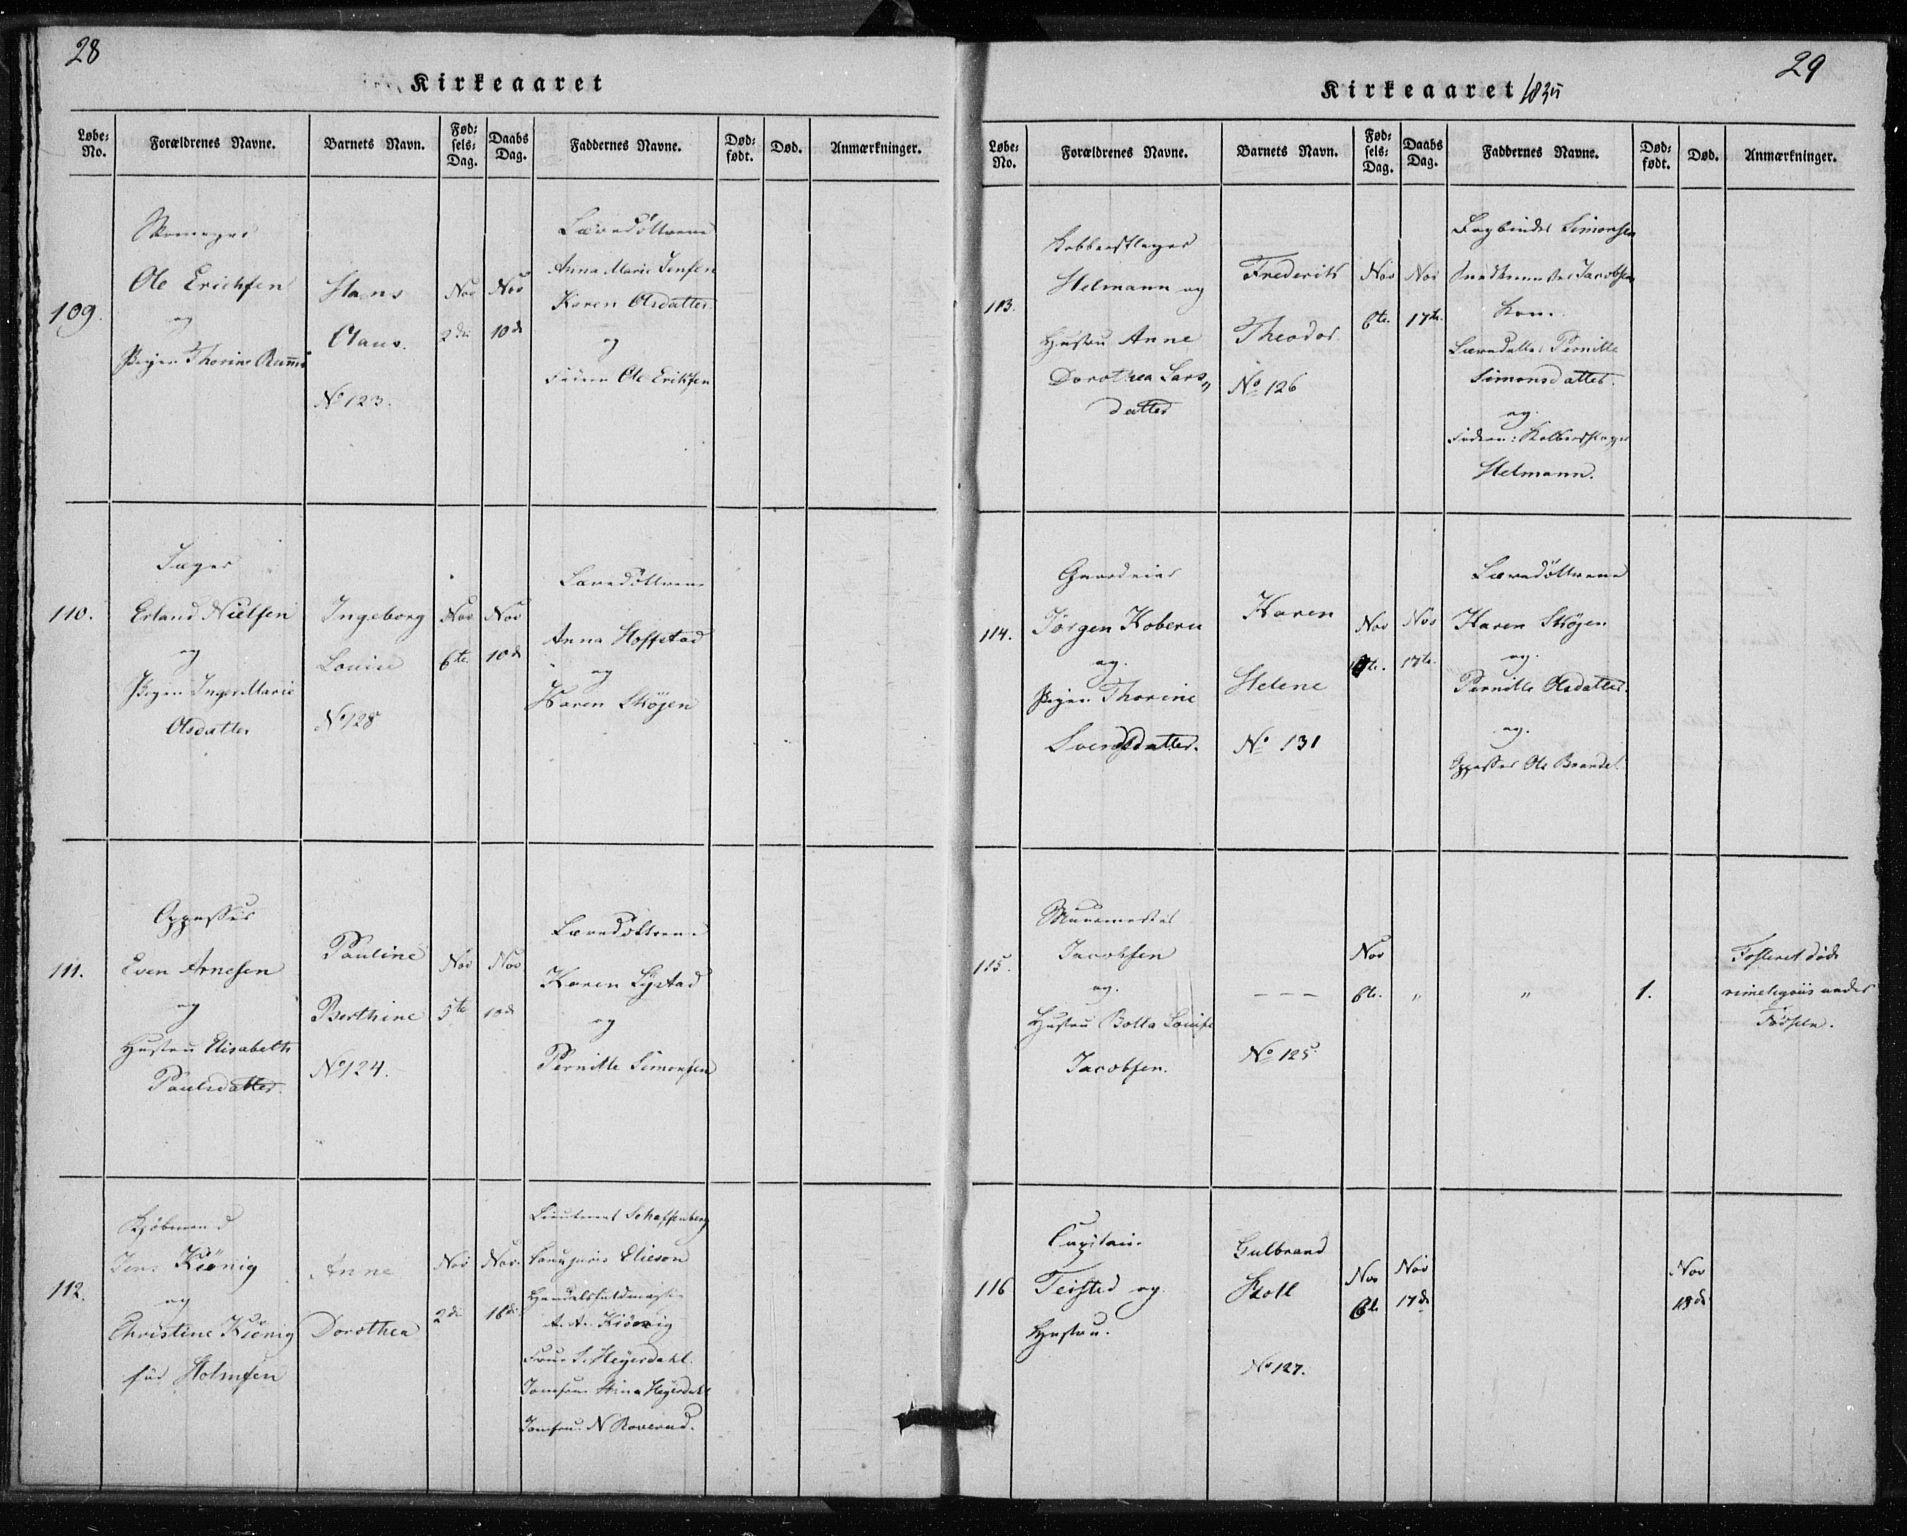 28
Kirkeaaret
Løbe-No.
Forældrenes Navne.
Barnets Navn.
Fødsels-Dag.
Daabs Dag.
Faddernes Navne.
Dødfødt.
Død.
Anmærkninger.
109.
Ole Erichsen
og
Pigen Thorine
Hans
Claus.
No 123.
Nov
2de
Nov
10de
Anna Marie Jensen
Karen Olsdatter
og
Ole Eriksen
110.
Jæger
Erland Nielsen
og
Pigen Inger Marie
Olsdatter
Ingeborg
Louise
No 128
Nov
6te
Nov
10de
Anna Hoffstad
og
Karen Skøjen
111.
Oppasser
Even Arnesen
og
Hustru Elisabeth
Paulsdatter.
Pauline
Berthine
No 124.
Nov
5te
Nov
10de
Karen Systad
og
Pernille Simonsen
112.
Kjøbmand
Jens Kiønig
og
Christine Kiønig
fød Holmsen
Anne
Dorothea
Nov
2de
Nov.
16de
Lieutenant Scheffenberg
Elieson
A. A. Kiønig
Frue S. Heyerdahl.
Jomfru Stina Heyerdahl
Jomfru N Roverud.
29
Kirkeaaret 1835
Løbe-No.
Forældrenes Navne.
Barnets Navn.
Fødsels-Dag.
Daabs Dag.
Faddernes Navne.
Dødfødt.
Død.
Anmærkninger.
113.
Kobberslager
Helmann og
Hustru Anne
Dorothea Lars-
datter
Frederik
Theodor
No 126
Nov
6te.
Nov
17de.
Bogbinder Simonsen
Jacobsen
Kone.
Pernille
Simonsdatter.
og
Faderen: Kobberslager
Helmann.
114.
Gaardeier
Jørgen Koberu
og.
Pigen Thorine
Svendsdatter.
Karen
Helene
No 131
Nov
Nov
17de.
Karen Skøjen
og.
Pernille Olsdatter.
og.
Oppasser Ole Brandel.
115.
Muurmester
Jacobsen
og.
Hustru Bolla Louise
Jacobsen.
– – –
No 125.
Nov
6te.
"
"
1.
Fosteret døde
rimeligviis under
Fødseln.
116
Capitain
Teisted og
Hustru.
Gulbrand
Skoll
No 127.
Nov
6te
Nov
17de
Nov
18de